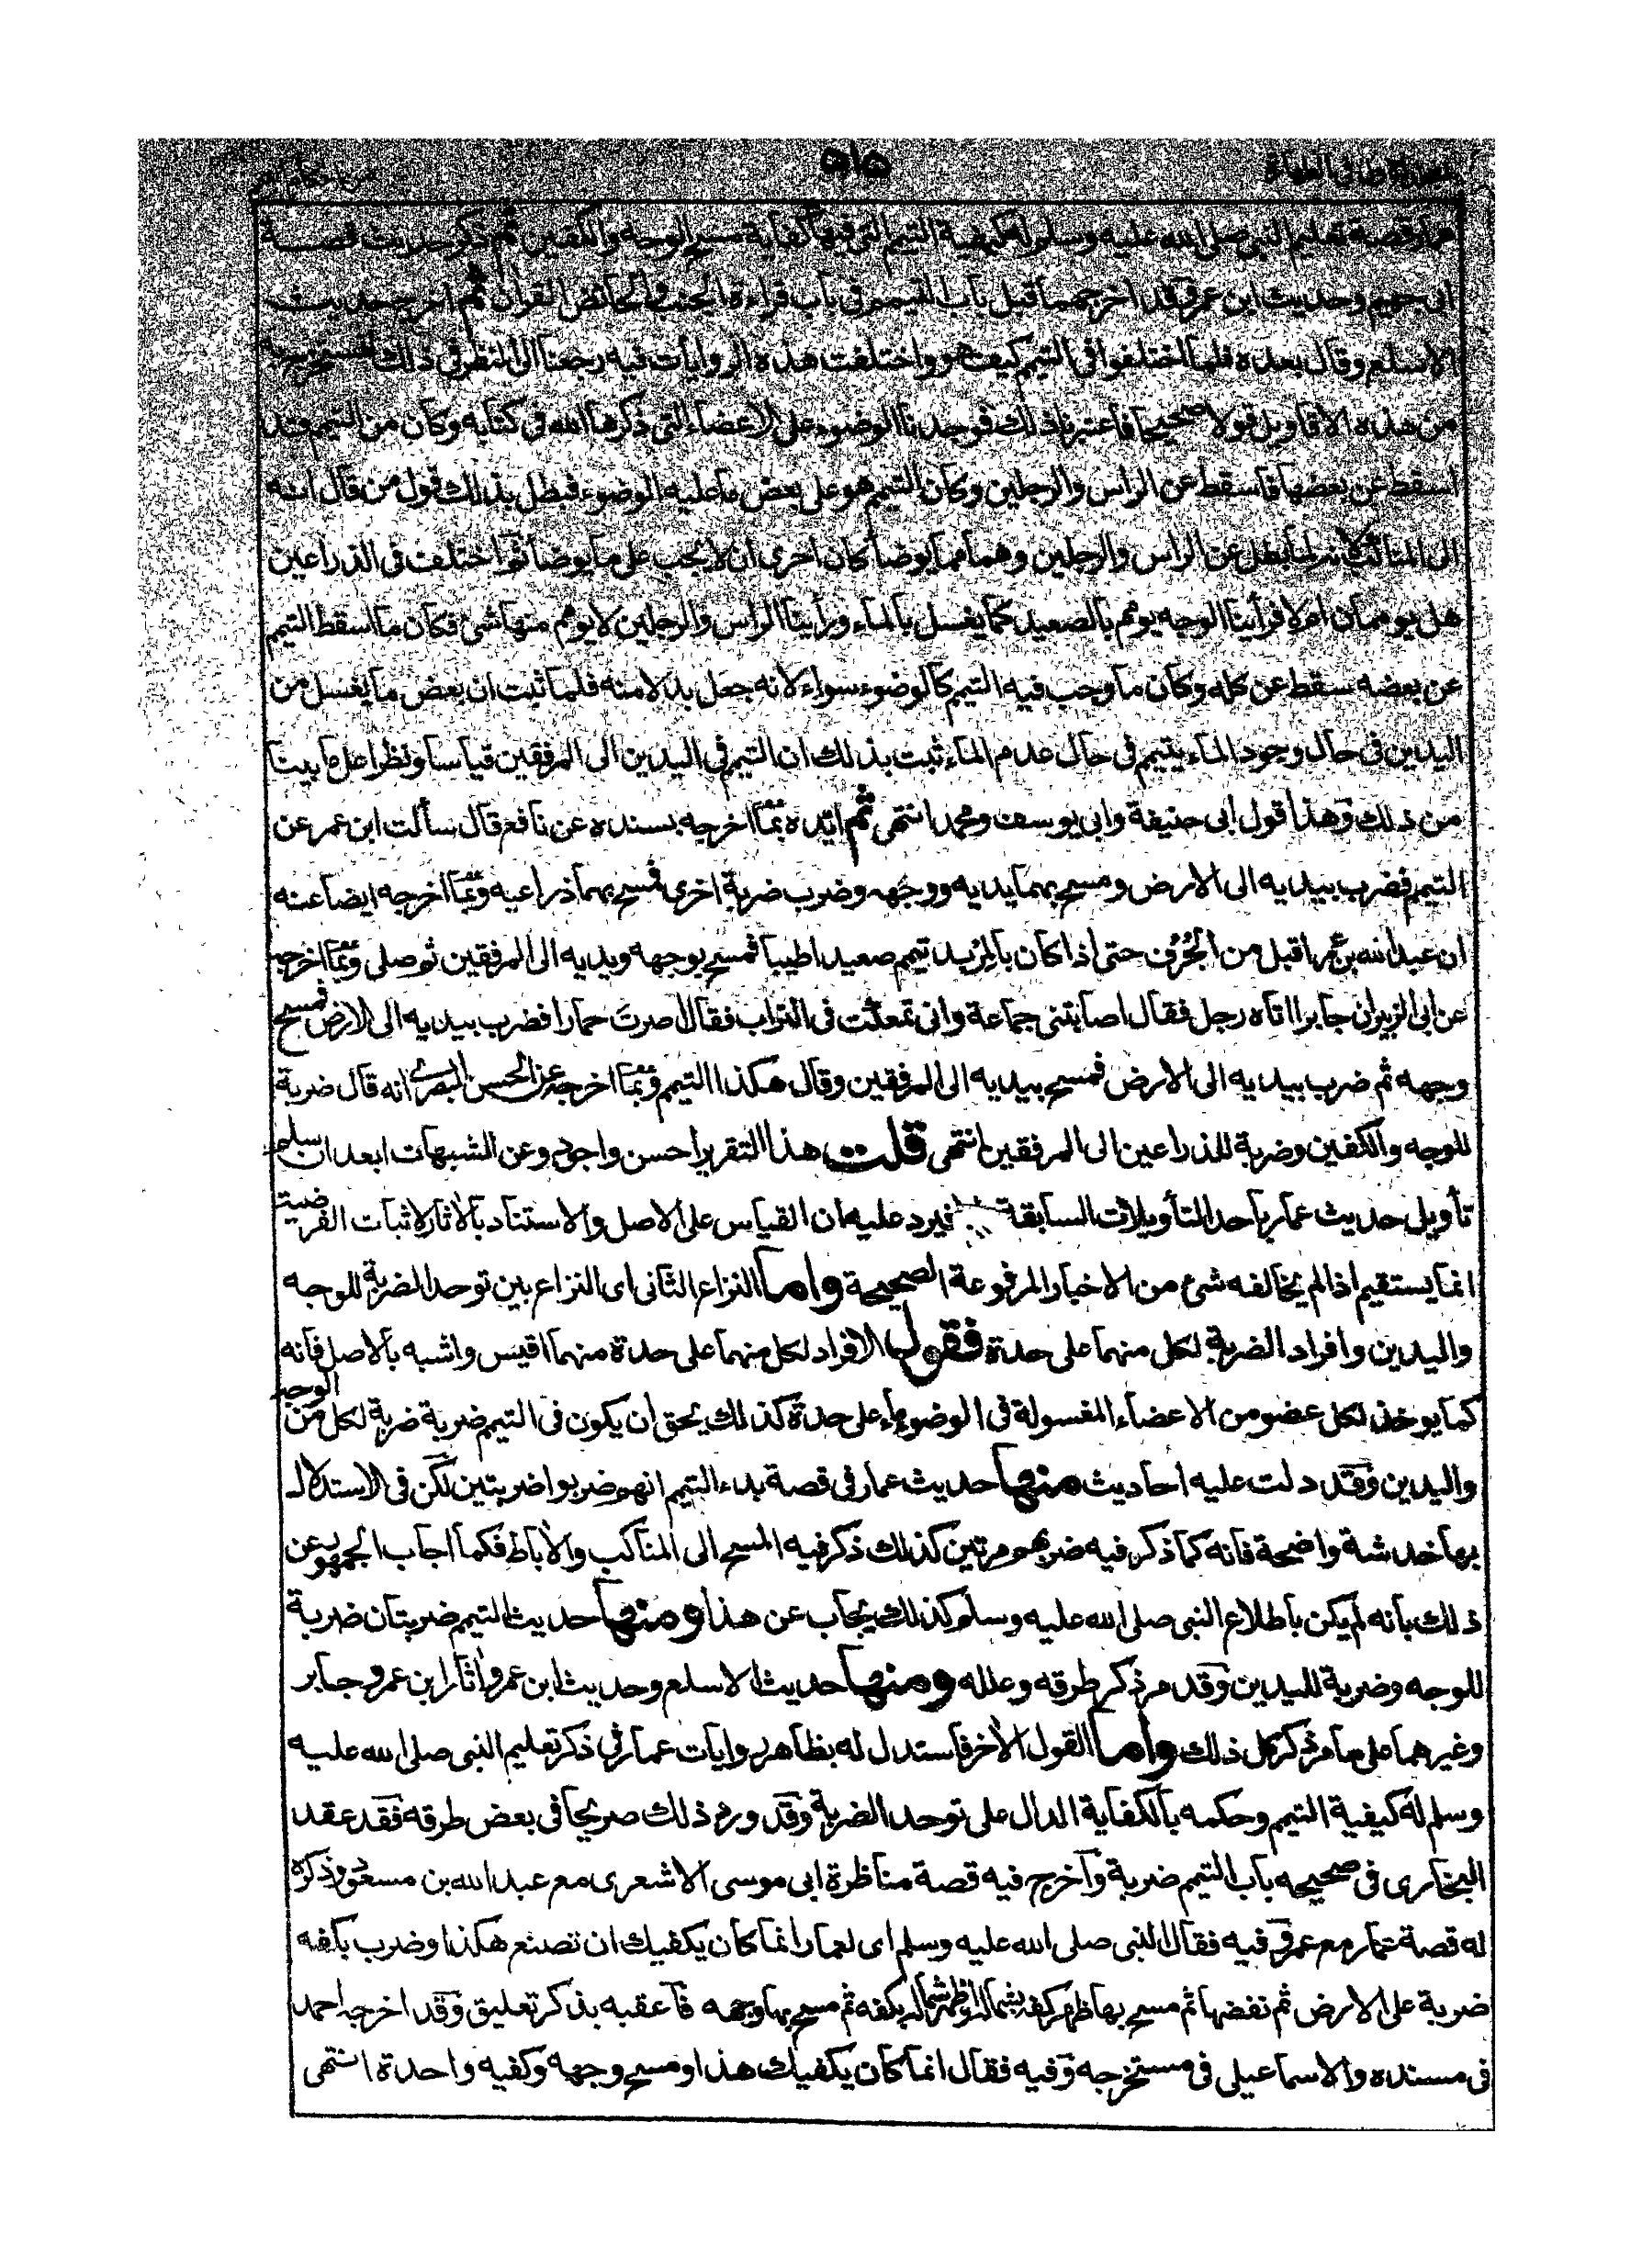 عمار وقصة تعليم النبى صلى الله عليه وسلم له كيفية التيمم التى فيها كفاية مسح الوجه والكفين ثم ذكر حديث قصة
ابى جهيم وحديث ابن عمر وقد اخرجهما قبل باب التيمم فى باب قراءة الجنب والحائض القرآن ثم اخرج حديث
الاسلع وقال بعده فلما اختلفوا فى التيمم كيف هو واختلفت هذه الروايات فيه رجعنا الى النظر فى ذلك لنستخرج به
من هذه الاقاويل قولا صحيحا فاعتبرنا ذلك فوجدنا الوضوء على الاعضاء التى ذكرها الله فى كتابه وكان من التيمم قد
اسقط عن بعضها فاسقط عن الراس والرجلين وكان التيمم هو على بعض ما عليه الوضوء فبطل بذلك قول من قال انه
الى المناكب لانه لما بطل عن الراس والرجلين وهما مما يوضأ كان احرى ان لا يجب على ما يوضأ ثم اختلف فى الذراعين
هل يوممان ام لا فرأينا الوجه يومم بالصعيد كما يغسل بالماء ورأينا الراس والرجلين لا يومم منهما شئ فكان ما اسقط التيمم
عن بعضه سقط عن كله وكان ما وجب فيه التيمم كالوضوء سواء لانه جعل بدلا منه فلما ثبت ان بعض ما يغسل من
اليدين فى حال وجود الماء ييمم فى حال عدم الماء ثبت بذلك ان التيمم فى اليدين الى المرفقين قياسا ونظرا على ما بينا
من ذلك وهذا قول ابى حنيفة وابى يوسف ومحمد انتهى ثم ايّده بما اخرجه بسنده عن نافع قال سألت ابن عمر عن
التيمم فضرب بيديه الى الارض ومسح بهما يديه ووجهه وضرب ضربة اخرى فمسح بهما ذراعيه وبما اخرجه ايضا عنه
ان عبد الله بن عمر اقبل من الجُرُف حتى اذا كان بالمِربد تيمم صعيدا طيبا فمسح بوجهه ويديه الى المرفقين ثم صلى وبما اخرجه
عن ابى الزبير ان جابرا اتاه رجل فقال اصابتنى جماعة وانى تمعكت فى التراب فقال اصرتَ حمارا فضرب بيديه الى الارض فمسح
وجهه ثم ضرب بيديه الى الارض فمسح بيديه الى المرفقين وقال هكذا التيمم وبما اخرجه عن الحسن البصرى انه قال ضربة
للوجه والكفين وضربة للذراعين الى المرفقين انتهى قلت هذا التقرير احسن واجود وعن الشبهات ابعد ان سلم
تأويل حديث عمار باحد التأويلات السابقة فيرد عليه ان القياس على الاصل والاستناد بالآثار لاثبات الفرضية
انما يستقيم اذا لم يخالفه شئ من الاخبار المرفوعة الصحيحة واما النزاع الثانى اى النزاع بين توحد الضربة للوجه
واليدين وافراد الضربة لكل منهما على حدة فقول الافراد لكل منهما على حدة منهما اقيس واشبه بالاصل فانه
كما يوخذ لكل عضو من الاعضاء المغسولة فى الوضوء ماء على حدة كذلك يحق ان يكون فى التيمم ضربة ضربة لكل من الوجه
واليدين وقد دلت عليه احاديث منها حديث عمار فى قصة بدء التيمم انهم ضربوا ضربتين لكن فى الاستدلال
بها خدشة واضحة فانه كما ذكر فيه ضربهم مرتين كذلك ذكر فيه المسح الى المناكب والآباط فكما اجاب الجمهور عن
ذلك بانه لم يكن باطلاع النبى صلى الله عليه وسلم كذلك يجاب عن هذا ومنها حديث التيمم ضربتان ضربة
للوجه وضربة لليدين وقد مر ذكر طرقه وعلله ومنها حديث الاسلع وحديث ابن عمر وآثار ابن عمر وجابر
وغيرهما على ما مر ذكر كل ذلك واما القول الآخر فاستدل له بظاهر روايات عمار فى ذكر تعليم النبى صلى الله عليه
وسلم له كيفية التيمم وحكمه بالكفاية الدال على توحد الضربة وقد ورد ذلك صريحا فى بعض طرقه فقد عقد
البخارى فى صحيحه باب التيمم ضربة وآخرج فيه قصة مناظرة ابى موسى الاشعرى مع عبد الله بن مسعود وذكره
له قصة عمار مع عمر وفيه فقال النبى صلى الله عليه وسلم اى لعمار انما كان يكفيك ان تصنع هكذا وضرب بكفه
ضربة على الارض ثم نفضها ثم مسح بها ظهر كفه بشماله او ظهر شماله بكفه ثم مسح بها وجهه فآ عقبه بذكر تعليق وقد اخرجه احمد
فى مسنده والاسماعيلى فى مستخرجه وفيه فقال انما كان يكفيك هذا ومسح وجهه وكفيه واحدة انتهى